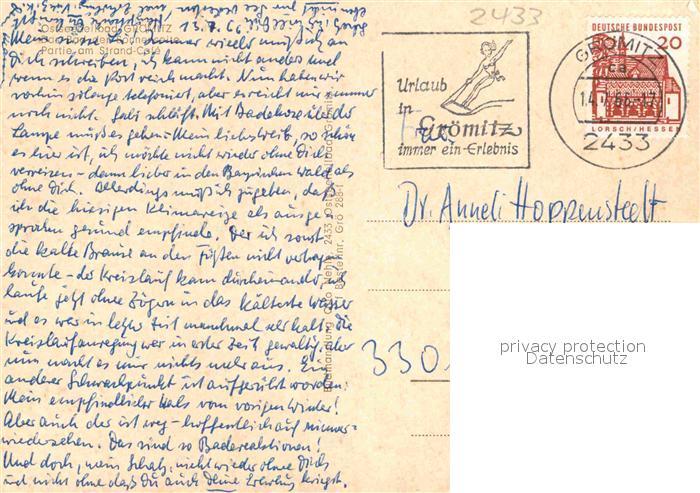 2433
Ostseeheilbad GRÖMITZ
Partie am Strand-Café
13.7.66
Meine süsse
Dir schreiben, ich kann nicht anders und
wenn es die Post reich macht. Nun haben wir
vorhin solange telefoniert, aber es reicht mir immer
noch nicht. Gabi schläft. Mit Badehose über der
Lampe muß es gehen. Mein liebstes Weib, so schön
es hier ist, ich möchte nicht wieder ohne Dich
verreisen - dann lieber in den Bayrischen Wald als
ohne Dich. Allerdings muß ich zugeben, daß
ich die hiesigen Klimareize als ausge-
sprochen gesund empfinde. Der ich sonst
die kalte Brause an den Füßen nicht vertragen
konnte - der Kreislauf kam durcheinander, ich
laufe jetzt ohne Zögern in das kälteste Wasser
und es war in letzter Zeit manchmal sehr kalt. Die
Kreislaufanregung war in erster Zeit gewaltig, aber
nun macht es mir nichts mehr aus. Ein
anderer Schwachpunkt ist aufgerührt worden:
Mein empfindlicher Hals vom vorigen Winter!
Aber auch der ist weg - hoffentlich auf nimmer-
wiedersehen. Das sind so Badereaktionen!
Und doch, mein Schatz, nicht wieder ohne Dich
und nicht ohne daß Du auch Deine Erholung kriegst.
2433 Ostseeheilbad Grömitz
Bestellnr. Grö 288-f
Urlaub
in
Grömitz
immer ein Erlebnis
GRÖMITZ
2433
DEUTSCHE BUNDESPOST
20
LORSCH/HESSEN
Dr. Anneli Hoppenstedt
330
privacy protection
Datenschutz